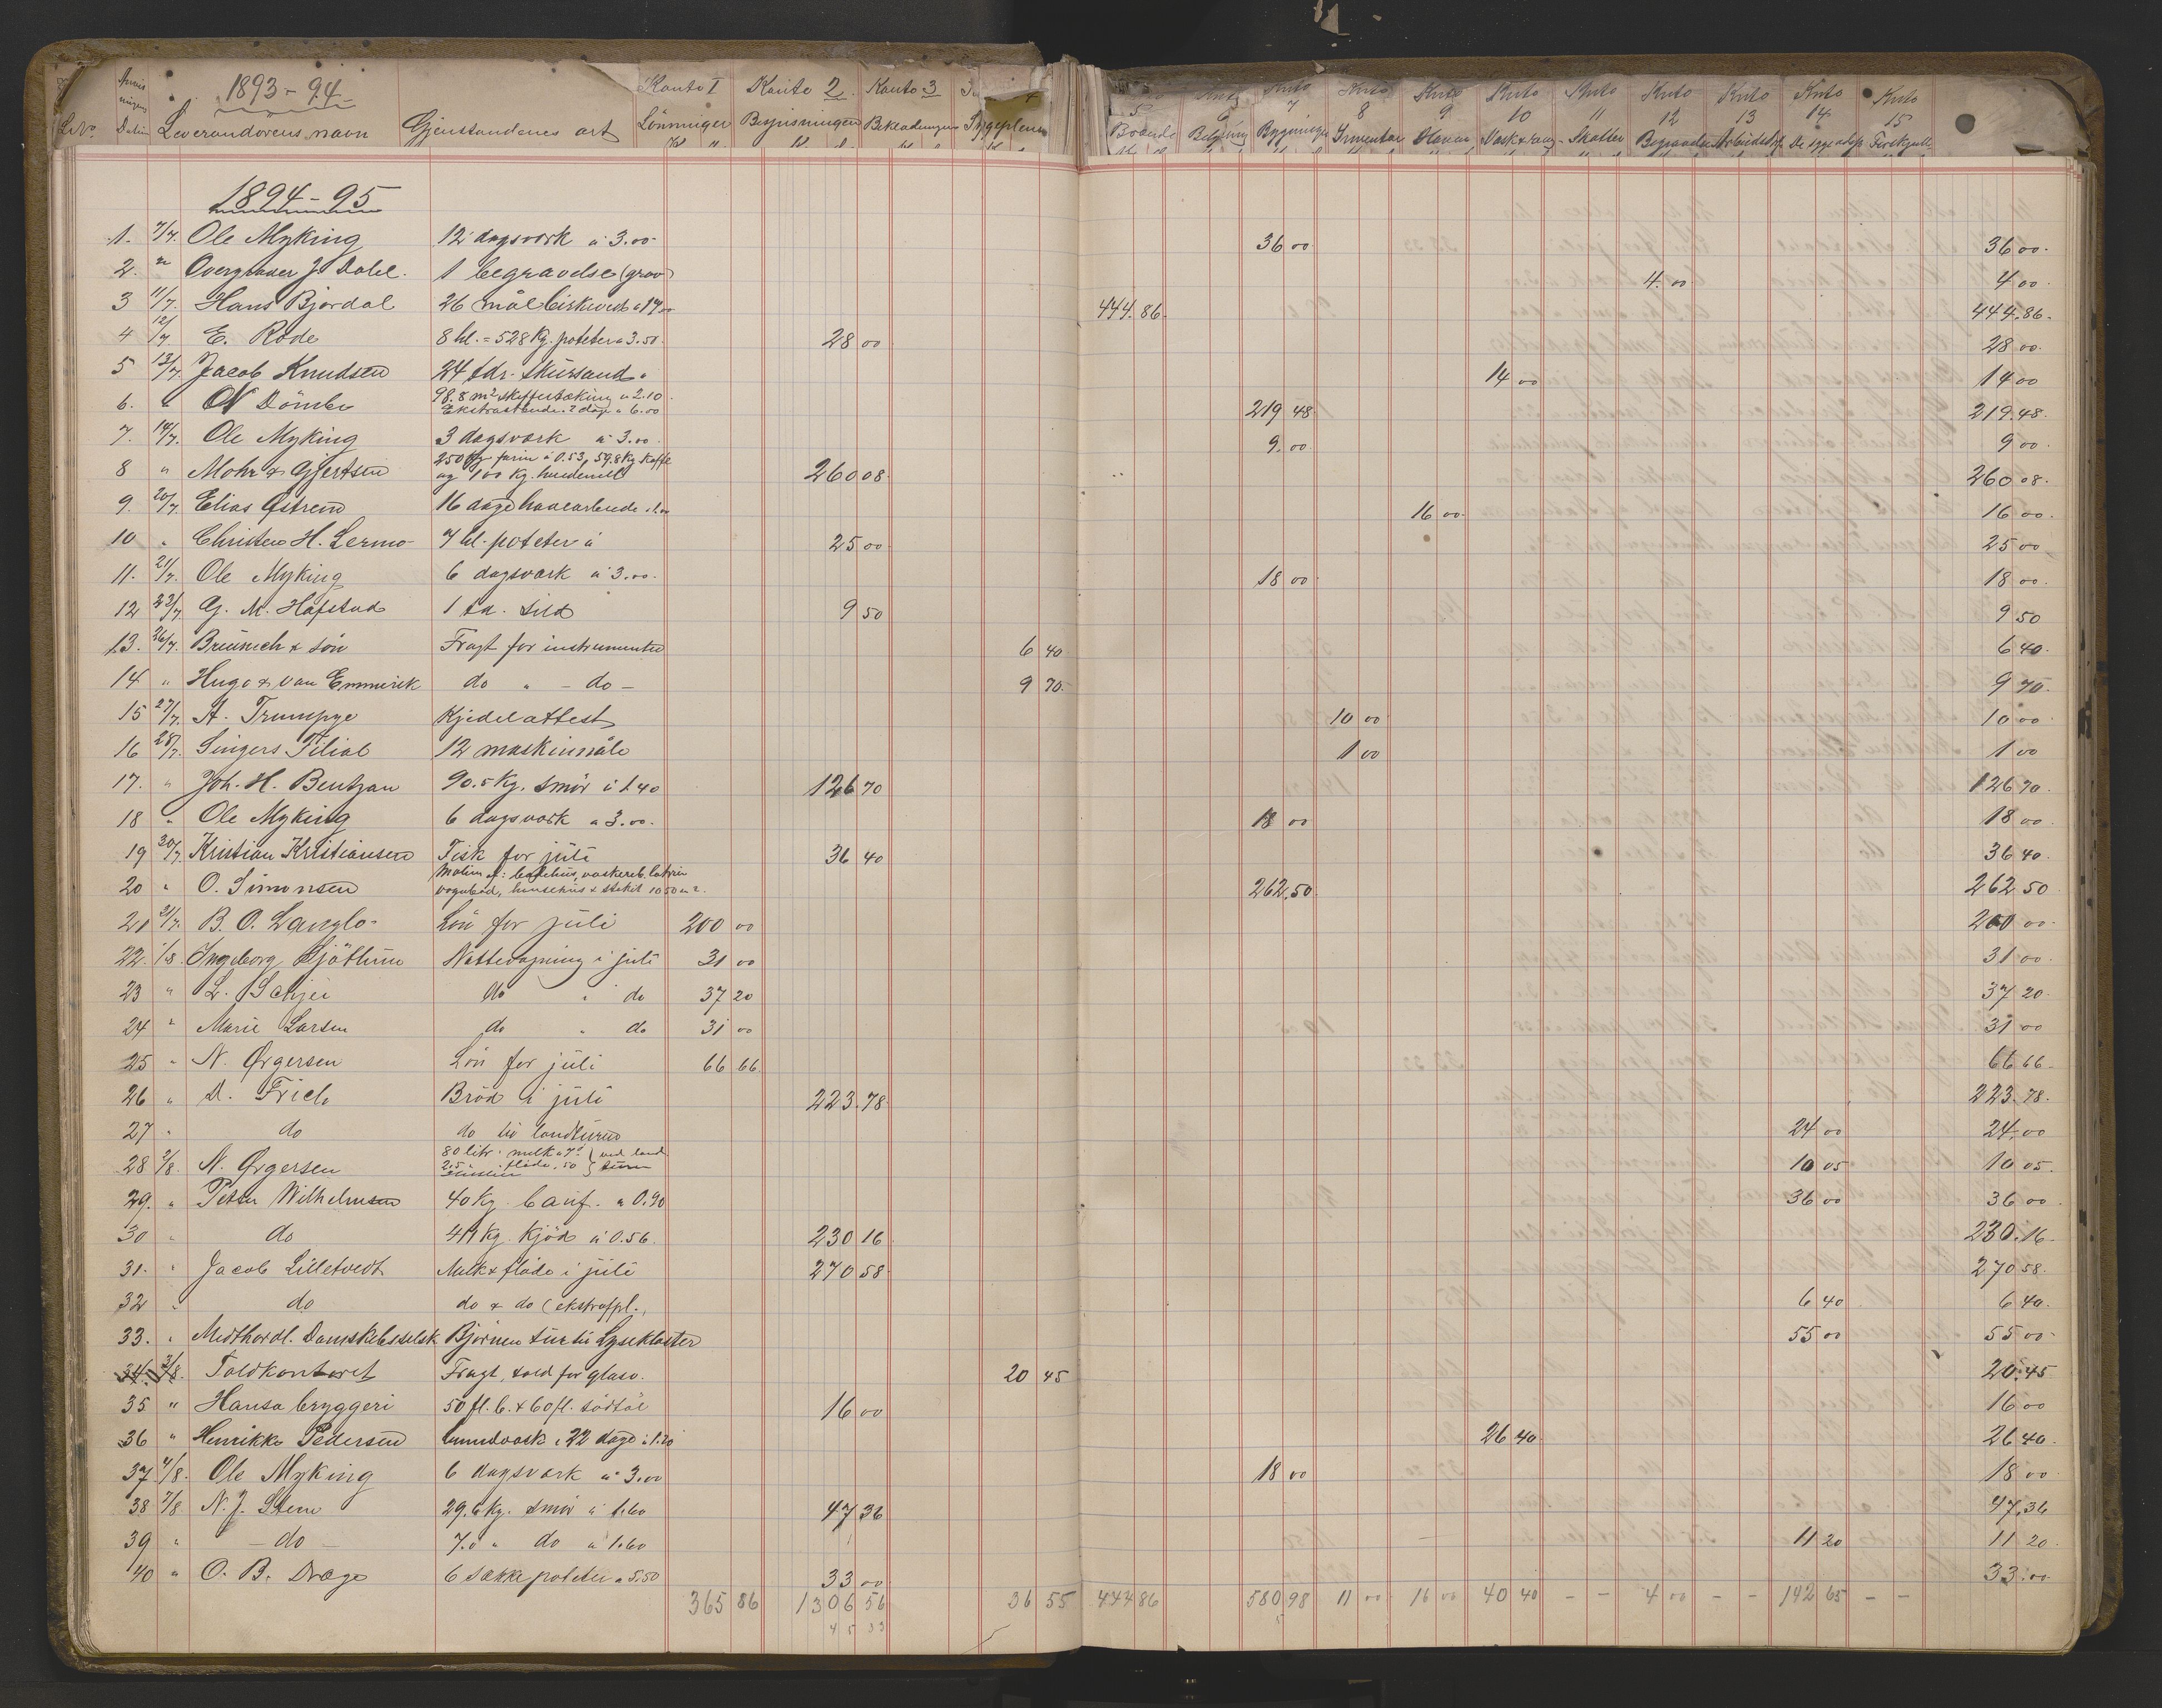 1893-94 Konto 1 Konto 2 Konto 3 Konto 7 8 9 Konto 10 Konto 11 Konto 12 Konto 13 Konto 14 Konto 15
Datum Leverandørens navn Gjenstandenes art Lönninger Bespisningen Beklædningen Sygepleien Brænde Belysning Bygninger Inventar Haven Skatter
1894-95
1. 7/7. Ole Myking 12 dagsverk à 3.00 36 00 36 00
2. " J. Dahl. 1 begravelse (grav) 4.00 4 00
3 11/7. Hans Bjordal 26 mål birkeved à 17 444.86 444.86
4 12/7 E. Rode 8 hl. = 528 Kg. poteter à 3.50 28 00 28 00
5 13/7. Jacob Knudsen 24 tdr. skursand 14 00 14 00
6. " 98.8 m² à 2.10 Ekstraarbeide 2 dage à 6.00 219 48 219.48
7. 14/7. Ole Myking 3 dagsverk à 3.00 9.00 9 00
8 " Mohr & Gjertsen 250 Kg. farin à 0.53, 59.8 Kg. kaffe og 100 Kg. 260 08 260 08
9. 20/7. Elias Østrem 16 dage havearbeide 16 00 16 00
10 " Christen H. Lermo 7 hl. poteter à 25 00 25 00
11. 21/7. Ole Myking 6 dagsverk à 3.00 18 00 18 00
12 23/7 G. M. Hafstad 1 td. sild 9 50 9 50
13. 26/7. Brünech & sön Fragt for instrumenter 6 40 6 40
14 " Hugo & van Emmerik do " - do - 9 70 9 70
15 27/7. A. Trumpye Kjedelattest 10 00 10 00
16 28/7. Singers Filial 12 maskinnåle 1 00 1 00
17. " Joh. H. Bentzon 90.5 Kg. smör à 1.40 126 70 126 70
18 " Ole Myking 6 dagsverk à 3.00 18 00 18 00
19 30/7 Kristian Kristiansen Fisk for juli 36 40 36 40
20 " O. Simonsen 262.50 262 50
21 31/7. B. O. Langlo Lön for juli 200 00 200 00
22. 1/8. Ingeborg Nattevagning i juli 31 00 31 00
23 " L. Schjei do i do 37 20 37 20
24 " Marie Larsen do " do 31 00 31 00
25 " N. Ørgersen Lön for juli 66 66 66 66
26 " D. Frich Bröd i juli 223.78 223.78
27 " do do til landturen 24 00 24.00
28 2/8. N. Ørgersen 80 litr. melk flöde 10 05 10 05
29. " Petter Wilhelmsen 40 Kg. bauf. à 0.90 36 00 36 00
30 " do 411 Kg. Kjöd à 0.56 230 16 230.16
31. " Jacob Lilletvedt Melk & flöde i juli 270 58 270 58
32 " do do & do 6 40 6 40
33. " Midthordl. Dampskibsselsk Björnen tur til Lysekloster 55 00 55 00
34. 3/8. Toldkontoret Fragt, told for glass. 20 45 20.45
35 " Hansa bryggeri 50 fl. b. & 60 fl. södtöl 16 00 16 00
36 " Henrikke Pedersen i 22 dage à 1.20 26 40 26 40
37 4/8. Ole Myking 6 dagsverk à 3.00 18 00 18 00
38 7/8 N. J. Stene 29.6 Kg. smör à 1.60 47 36 47.36
39 " - do - 7.0 " do à 1.60 11 20 11 20
40 " O. B. Drage 6 sække poteter à 5.50 33 00 33.00
365 86 1306 56 36 55 444 86 580 98 11 00 16 00 40 40 - - 4 00 - - 142 65 - -